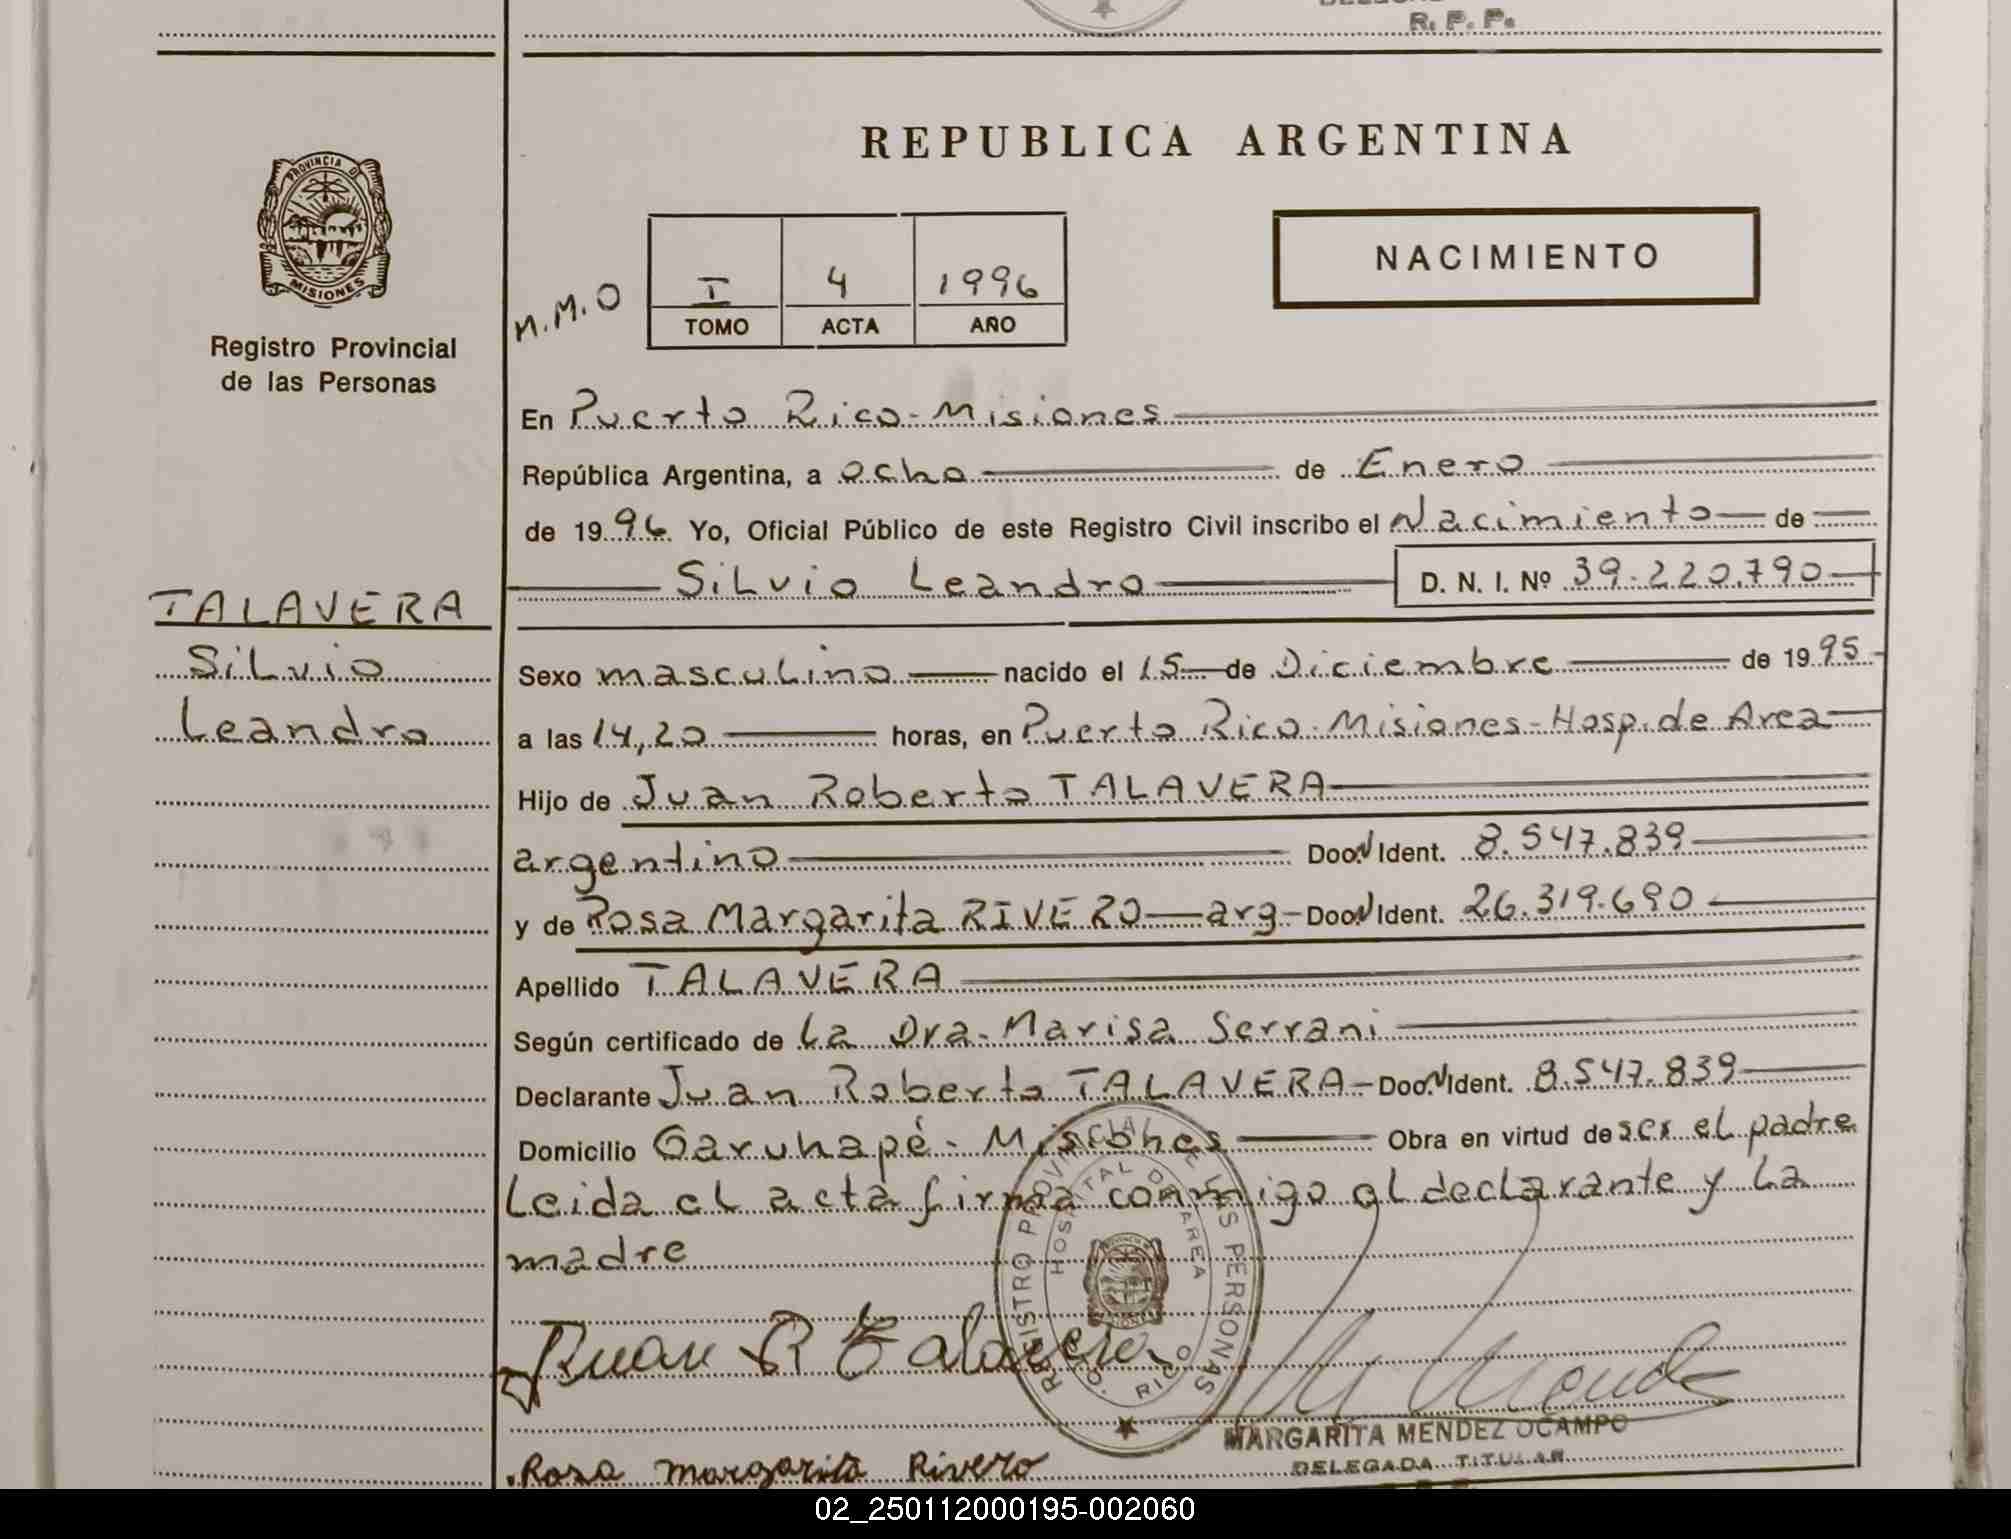 R. P. P.
REPUBLICA ARGENTINA
PROVINCIA DE
MISIONES
Registro Provincial
de las Personas
NACIMIENTO
M.M.O
I 4 1996
TOMO ACTA AÑO
En Puerto Rico - Misiones
República Argentina, a ocho de Enero
de 1996 Yo, Oficial Público de este Registro Civil inscribo el Nacimiento de
Silvio Leandro D. N. I. Nº 39.220.790
TALAVERA
Silvio
Leandro
Sexo masculino nacido el 15 de Diciembre de 1995
a las 14,20 horas, en Puerto Rico - Misiones - Hosp. de Area
Hijo de Juan Roberto TALAVERA
argentino Doc. N Ident. 8.547.839
y de Rosa Margarita RIVERO - arg - Doc. N Ident. 26.319.690
Apellido TALAVERA
Según certificado de La Dra. Marisa Serrani
Declarante Juan Roberto TALAVERA - Doc. N Ident. 8.547.839
Domicilio Garuhapé - Misiones Obra en virtud de ser el padre
Leida el acta firma conmigo el declarante y La
madre
REGISTRO PROVINCIAL DE LAS PERSONAS
HOSPITAL DE AREA
PTO. RICO
Juan R Talavera
MARGARITA MENDEZ OCAMPO
DELEGADA TITULAR
Rosa Margarita Rivero
02_250112000195-002060